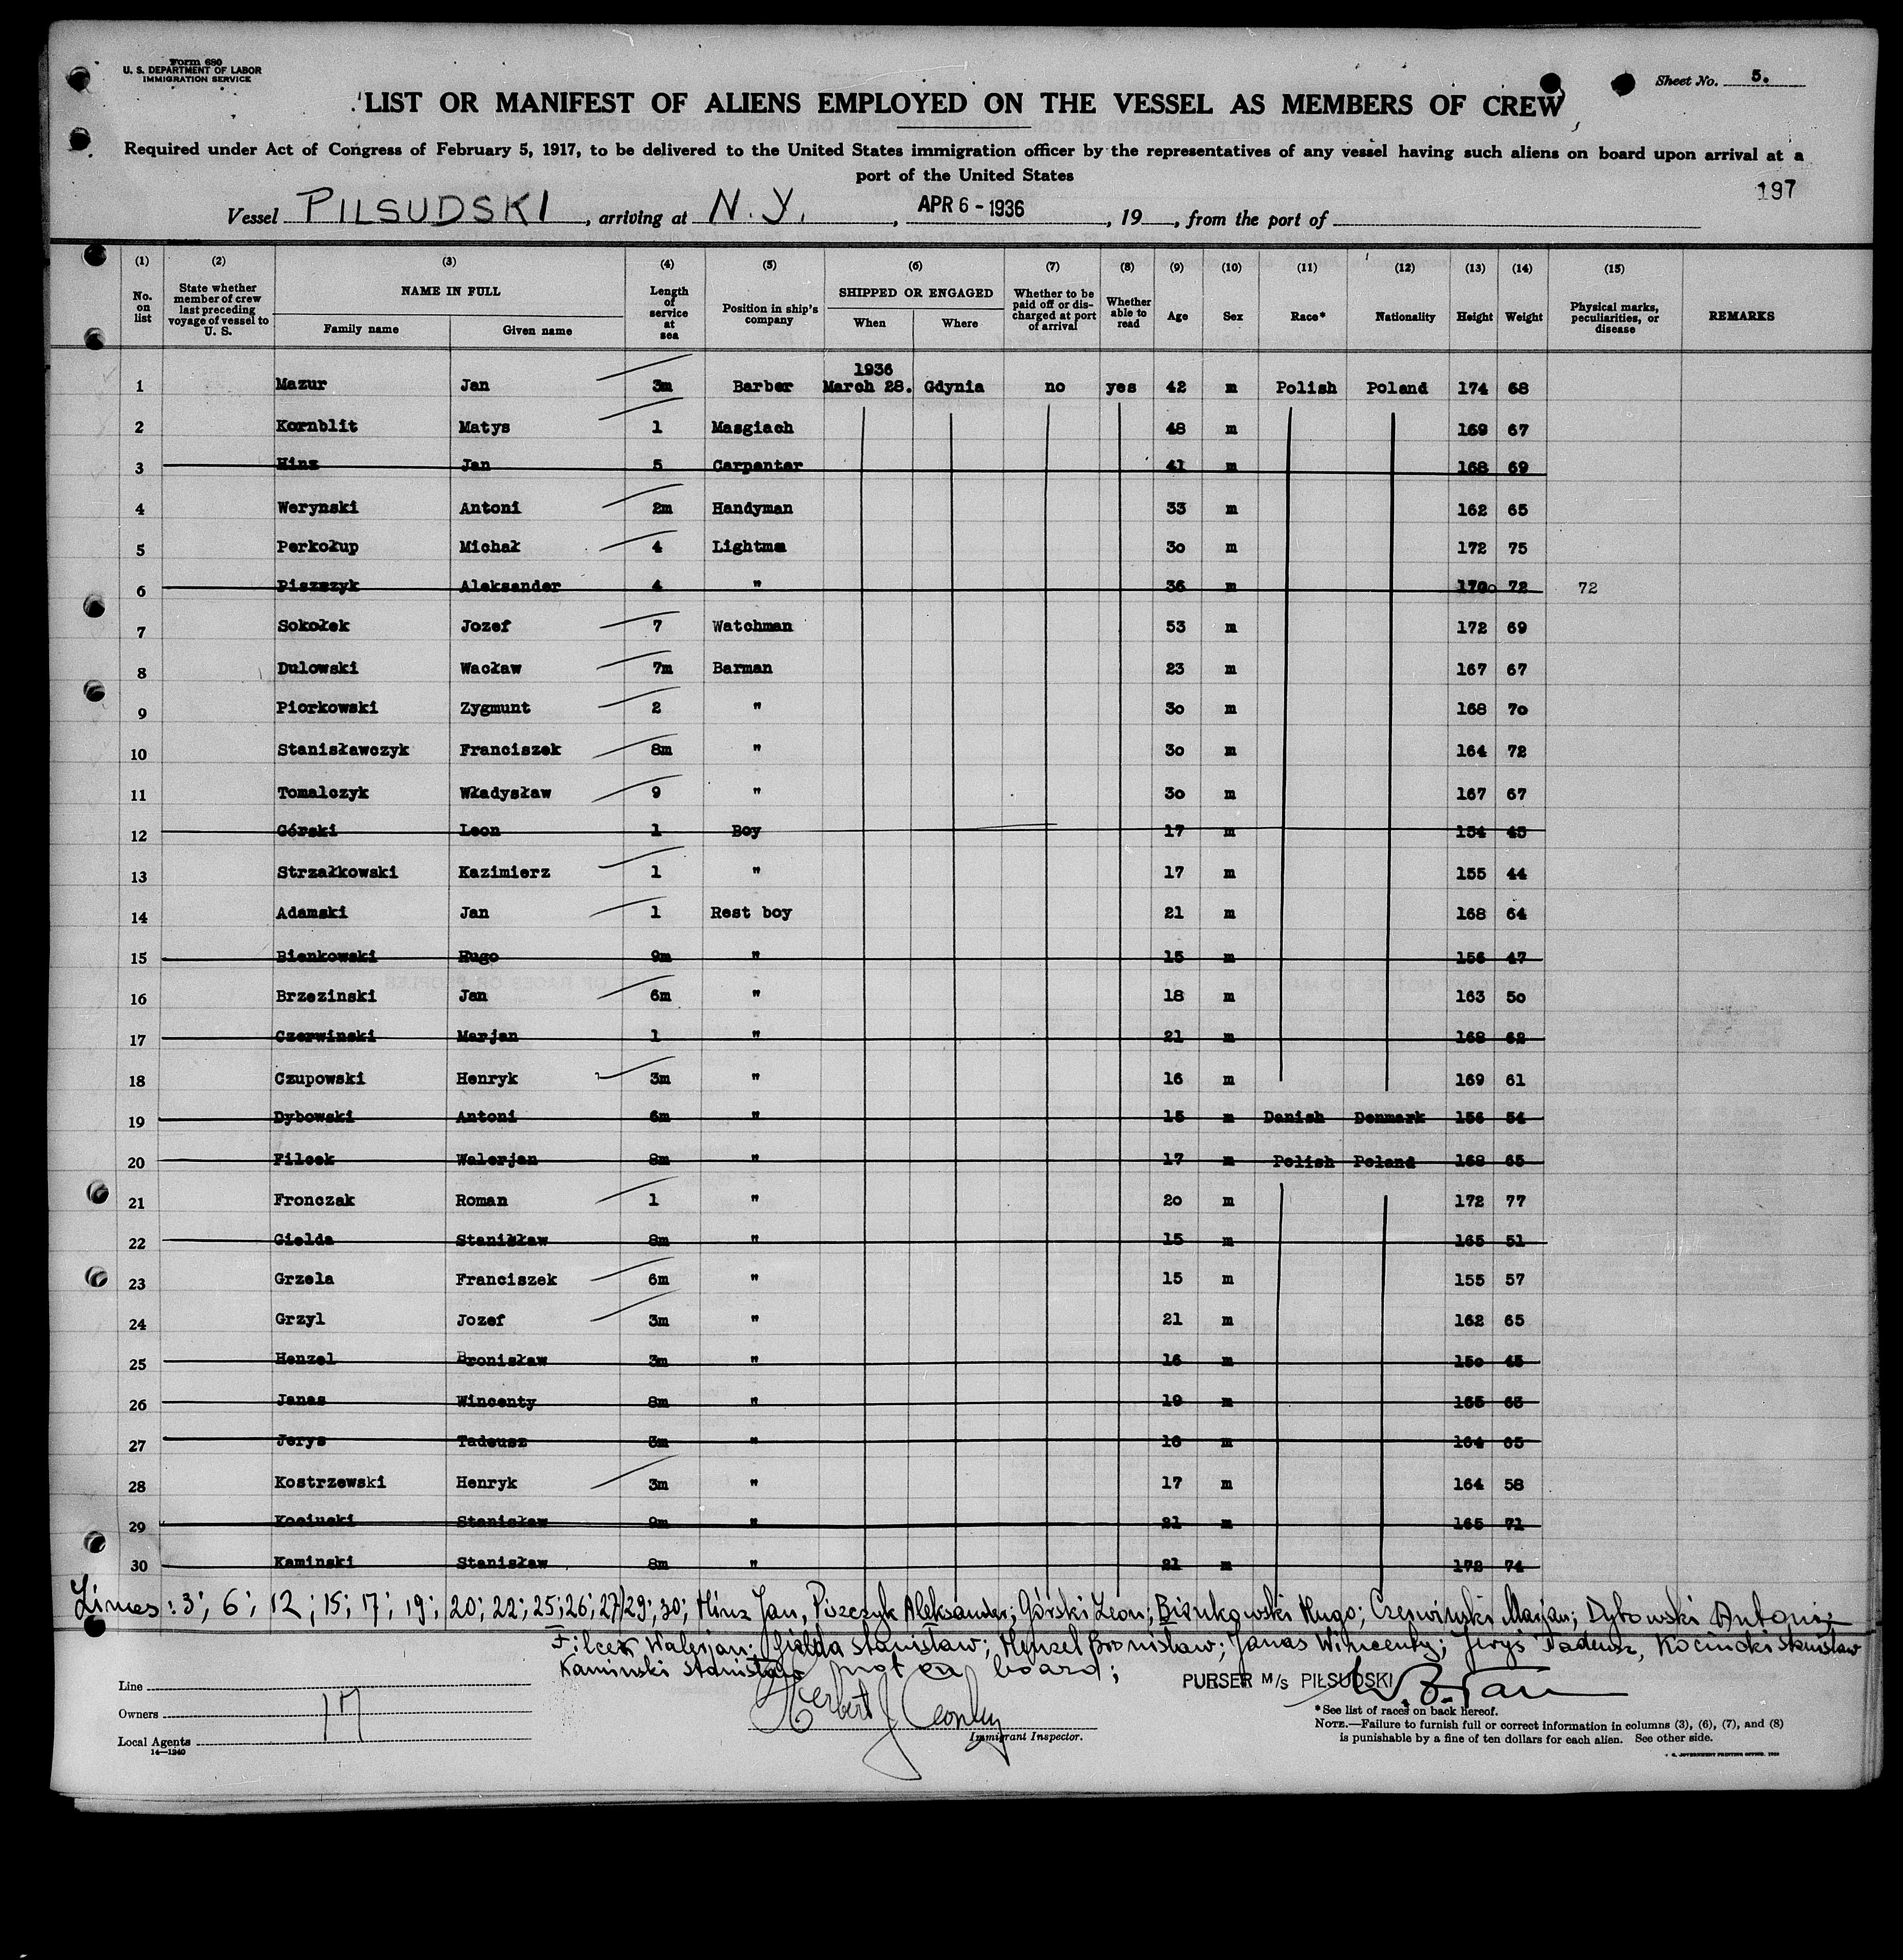 Form 680
U. S. DEPARTMENT OF LABOR
IMMIGRATION SERVICE
Sheet No. 5.
LIST OR MANIFEST OF ALIENS EMPLOYED ON THE VESSEL AS MEMBERS OF CREW
Required under Act of Congress of February 5, 1917, to be delivered to the United States immigration officer by the representatives of any vessel having such aliens on board upon arrival at a
port of the United States
197
Vessel PILSUDSKI, arriving at N. Y., APR 6 - 1936, 19 , from the port of
(1) (2) (3) (4) (5) (6) (7) (8) (9) (10) (11) (12) (13) (14) (15)
No. on list State whether member of crew last preceding voyage of vessel to U. S. NAME IN FULL Family name Given name Length of service at sea Position in ship's company SHIPPED OR ENGAGED When Where Whether to be paid off or discharged at port of arrival Whether able to read Age Sex Race* Nationality Height Weight Physical marks, peculiarities, or disease REMARKS
1936
1 Mazur Jan 3m Barber March 28. Gdynia no yes 42 m Polish Poland 174 68
2 Kornblit Matys 1 Masgiach 48 m 169 67
3 Hinz Jan 5 Carpenter 41 m 168 69
4 Werynski Antoni 2m Handyman 33 m 162 65
5 Perkołup Michał 4 Lightma 30 m 172 75
6 Piszczyk Aleksander 4 " 36 m 170 72 72
7 Sokołek Jozef 7 Watchman 53 m 172 69
8 Dulowski Wacław 7m Barman 23 m 167 67
9 Piorkowski Zygmunt 2 " 30 m 168 70
10 Stanisławczyk Franciszek 8m " 30 m 164 72
11 Tomalczyk Władysław 9 " 30 m 167 67
12 Górski Leon 1 Boy 17 m 154 45
13 Strzałkowski Kazimierz 1 " 17 m 155 44
14 Adamski Jan 1 Rest boy 21 m 168 64
15 Bienkowski Hugo 9m " 15 m 156 47
16 Brzezinski Jan 6m " 18 m 163 50
17 Czerwinski Marjan 1 " 21 m 168 62
18 Czupowski Henryk 3m " 16 m 169 61
19 Dybowski Antoni 6m " 15 m Danish Denmark 156 54
20 Filcek Walerjan 8m " 17 m Polish Poland 168 65
21 Fronczak Roman 1 " 20 m 172 77
22 Gielda Stanisław 8m " 15 m 165 51
23 Grzela Franciszek 6m " 15 m 155 57
24 Grzyl Jozef 3m " 21 m 162 65
25 Henzel Bronisław 3m " 16 m 150 45
26 Janas Wincenty 8m " 19 m 165 65
27 Jerys Tadeusz 3m " 16 m 164 65
28 Kostrzewski Henryk 3m " 17 m 164 58
29 Kocinski Stanisław 9m " 21 m 165 71
30 Kaminski Stanisław 8m " 21 m 172 74
Lines: 3; 6; 12; 15; 17; 19; 20; 22; 25; 26; 27; 29; 30; Hinz Jan, Piszczyk Aleksander; Górski Leon; Bienkowski Hugo; Czerwinski Marjan; Dybowski Antoni;
Filcek Walerjan; Gielda Stanisław; Henzel Bronisław; Janas Wincenty; Jerys Tadeusz, Kocinski Stanisław
Kaminski Stanisław not on board;
PURSER M/S PIŁSUDSKI
Line
Owners
Local Agents
14—1240
Herbert J Conley
Immigrant Inspector.
*See list of races on back hereof.
NOTE.—Failure to furnish full or correct information in columns (3), (6), (7), and (8)
is punishable by a fine of ten dollars for each alien. See other side.